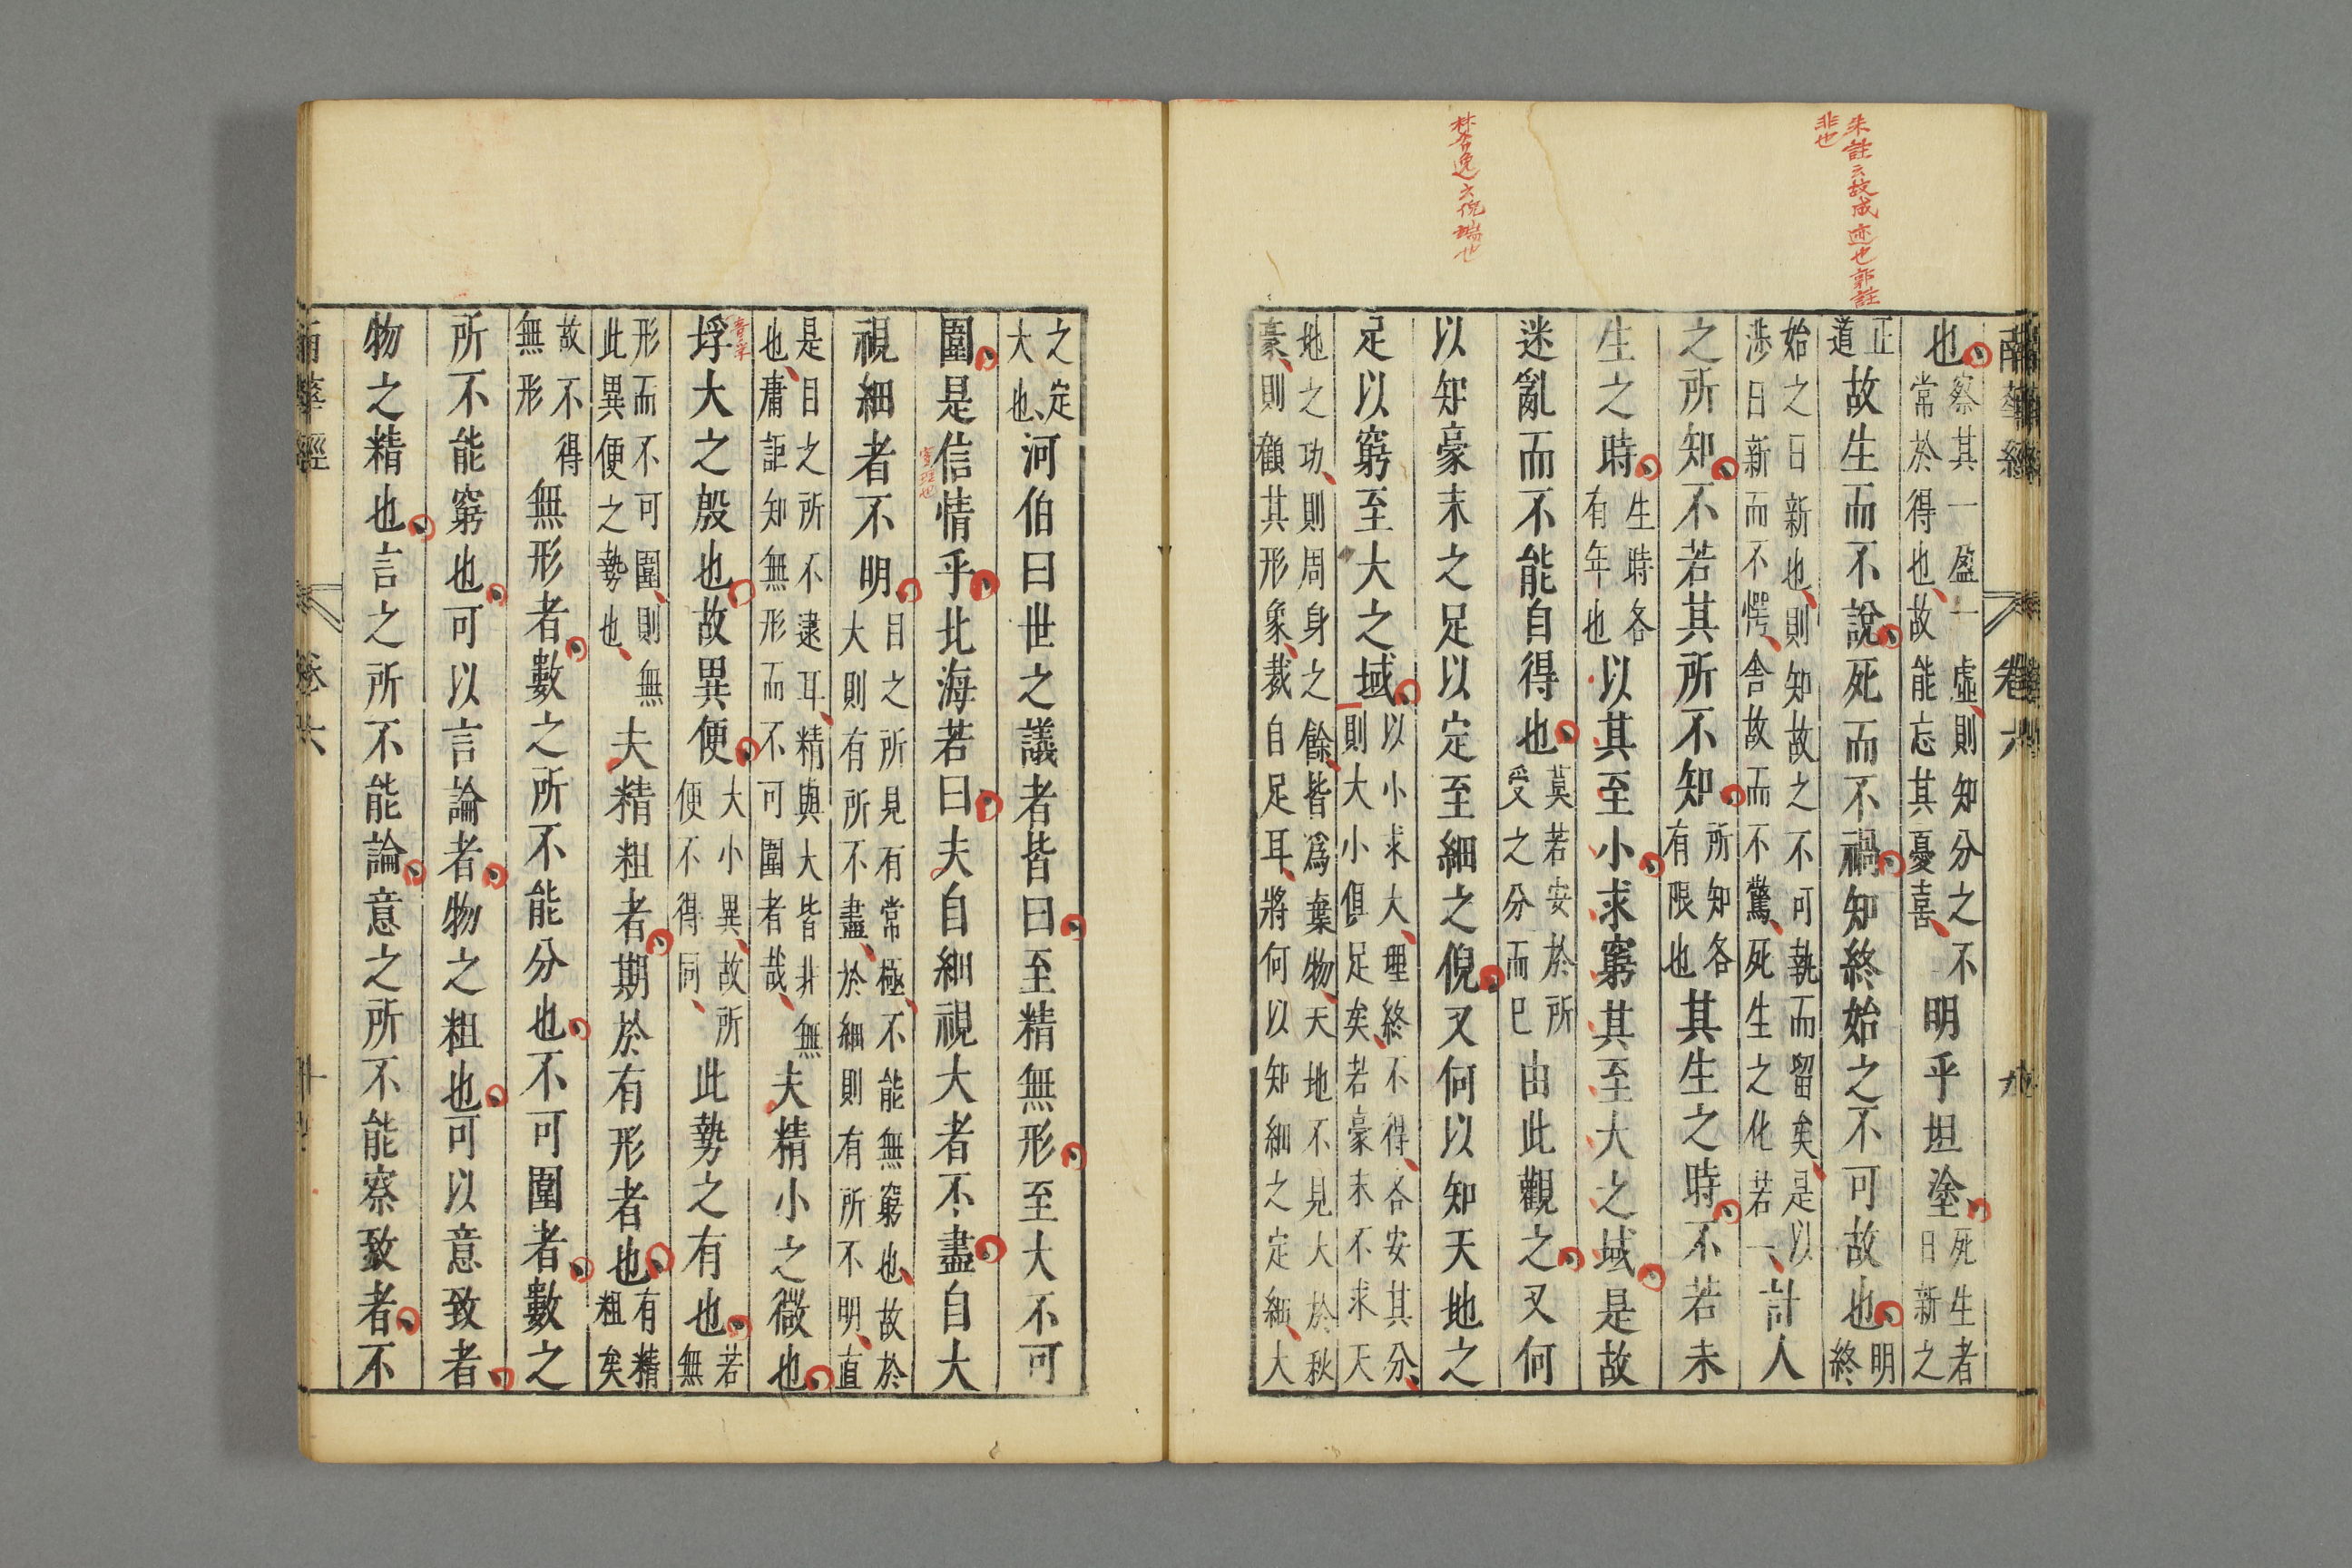 朱註云故成迹也郭註
非也
林希逸云倪端也
南華經 卷六 九
也察其一盈一虛則知分之不常於得也故能忘其憂喜明乎坦塗死生者日新之
正道故生而不說死而不禍知終始之不可故也明終
始之日新也則知故之不可執而留矣是以涉日新而不愕舍故而不驚死生之化若一計人
之所知不若其所不知所知各有限也其生之時不若未
生之時生時各有年也以其至小求窮其至大之域是故
迷亂而不能自得也莫若安於所受之分而已由此觀之又何
以知豪末之足以定至細之倪又何以知天地之
足以窮至大之域以小求大理終不得各安其分則大小俱足矣若豪末不求天
地之功則周身之餘皆爲棄物天地不見大於秋豪則顧其形象裁自足耳將何以知細之定細大
之定大也河伯曰世之議者皆曰至精無形至大不可
圍是信情乎北海若曰夫自細視大者不盡自大
實理也
視細者不明目之所見有常極不能無窮也故於大則有所不盡於細則有所不明直
是目之所不逮耳精與大皆非無也庸詎知無形而不可圍者哉夫精小之微也
垺大之殷也故異便大小異故所便不得同此勢之有也若無
形而不可圍則無此異便之勢也夫精粗者期於有形者也有精粗矣
故不得無形無形者數之所不能分也不可圍者數之
所不能窮也可以言論者物之粗也可以意致者
物之精也言之所不能論意之所不能察致者不
南華經 卷六 十